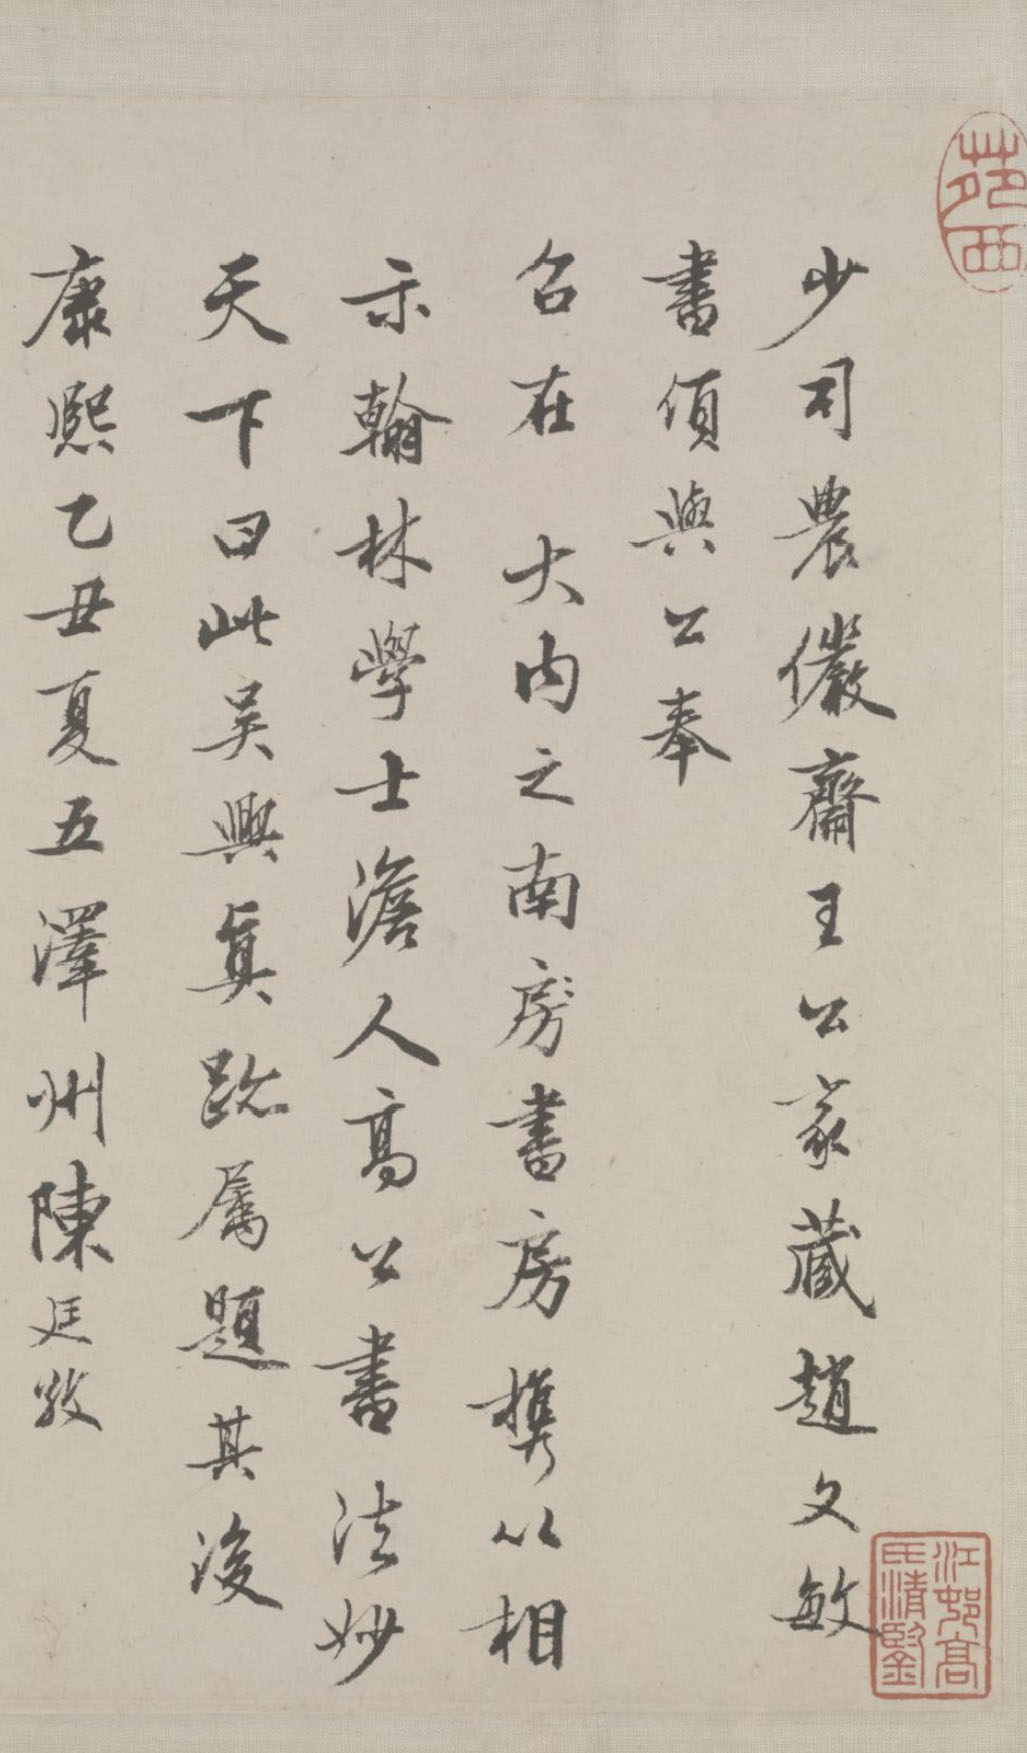 少司農儼齋王公家藏趙文敏
書傾與公奉
召在 大內之南房書房攜以相
示翰林學士澹人高公書法妙
天下曰此吳興真跡屬題其後
康熙乙丑夏五澤州陳廷敬
苑西
江邨高
氏清